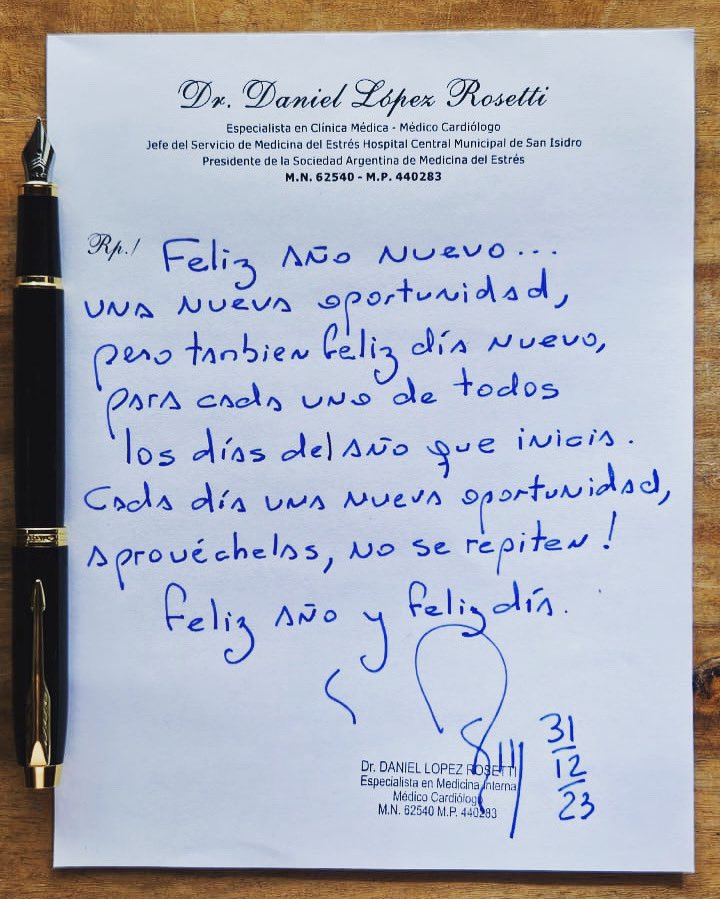 Dr. Daniel López Rosetti
Especialista en Clínica Médica - Médico Cardiólogo
Jefe del Servicio de Medicina del Estrés Hospital Central Municipal de San Isidro
Presidente de la Sociedad Argentina de Medicina del Estrés
M.N. 62540 - M.P. 440283
Rp./ Feliz año nuevo...
una nueva oportunidad,
pero tanbien feliz día nuevo,
para cada uno de todos
los días del año que inicia.
Cada día una nueva oportunidad,
aprovéchelas, no se repiten!
Feliz año y feliz día.
31
12
23
Dr. DANIEL LOPEZ ROSETTI
Especialista en Medicina Interna
Médico Cardiólogo
M.N. 62540 M.P. 440283